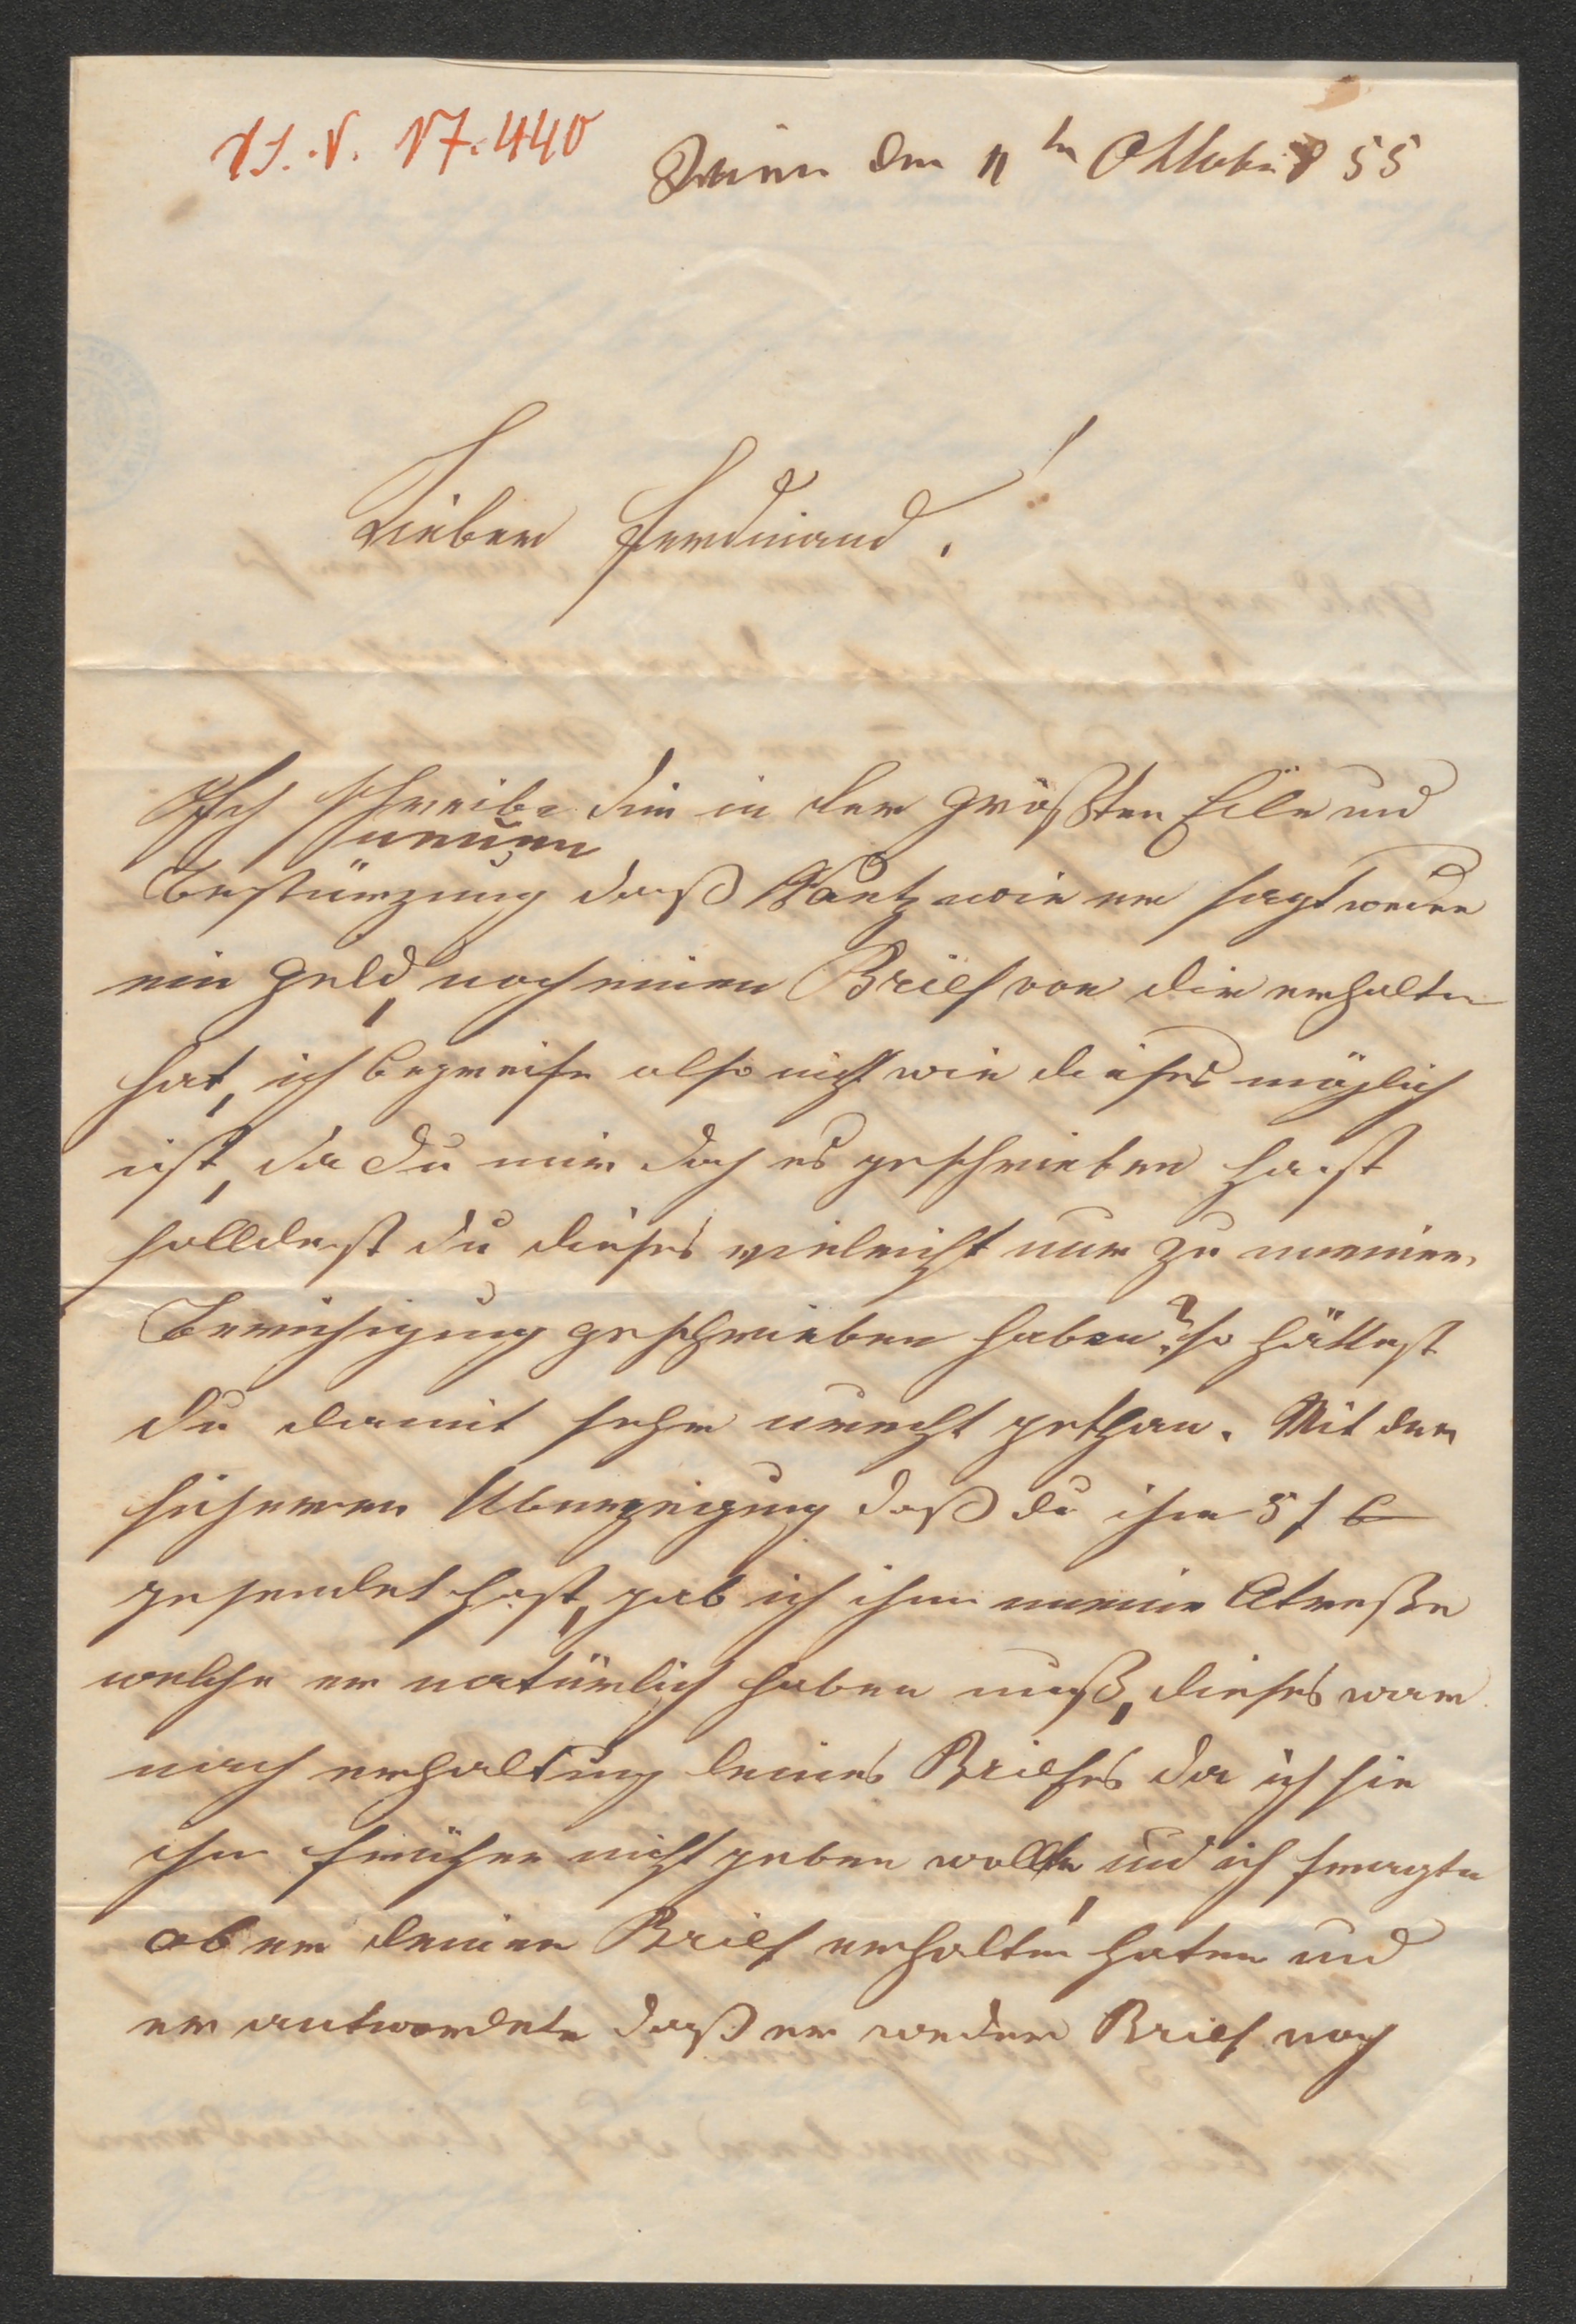 H.I.N. 17.440
Wien den 11ten Oktober 855
Lieber Ferdinand!
Ich schreibe dir in der größten Eile und
meine
Bestürzung daß Wantz wie er sagt weder
ein Geld, noch einen Brief von dir erhalten
hat, ich begreife also nicht wie dieses möglich
ist, da Du mir doch es geschrieben hast
solldest du dieses vieleicht nur zu meiner
Beruhigung geschrieben haben? so hättest
du damit sehr unrecht gethan. Mit der
sicheren Überzeigung daß du ihm 5 f
gesendet hast, gab ich ihm meine Atresße
welche er natürlich haben muß, dieses war
nach erhaltung deines Briefes da ich sie
ihm früher nicht geben wollte, und ich fragte
ob er deinen Brief erhalten hate und
er antwordete daß er weder Brief noch